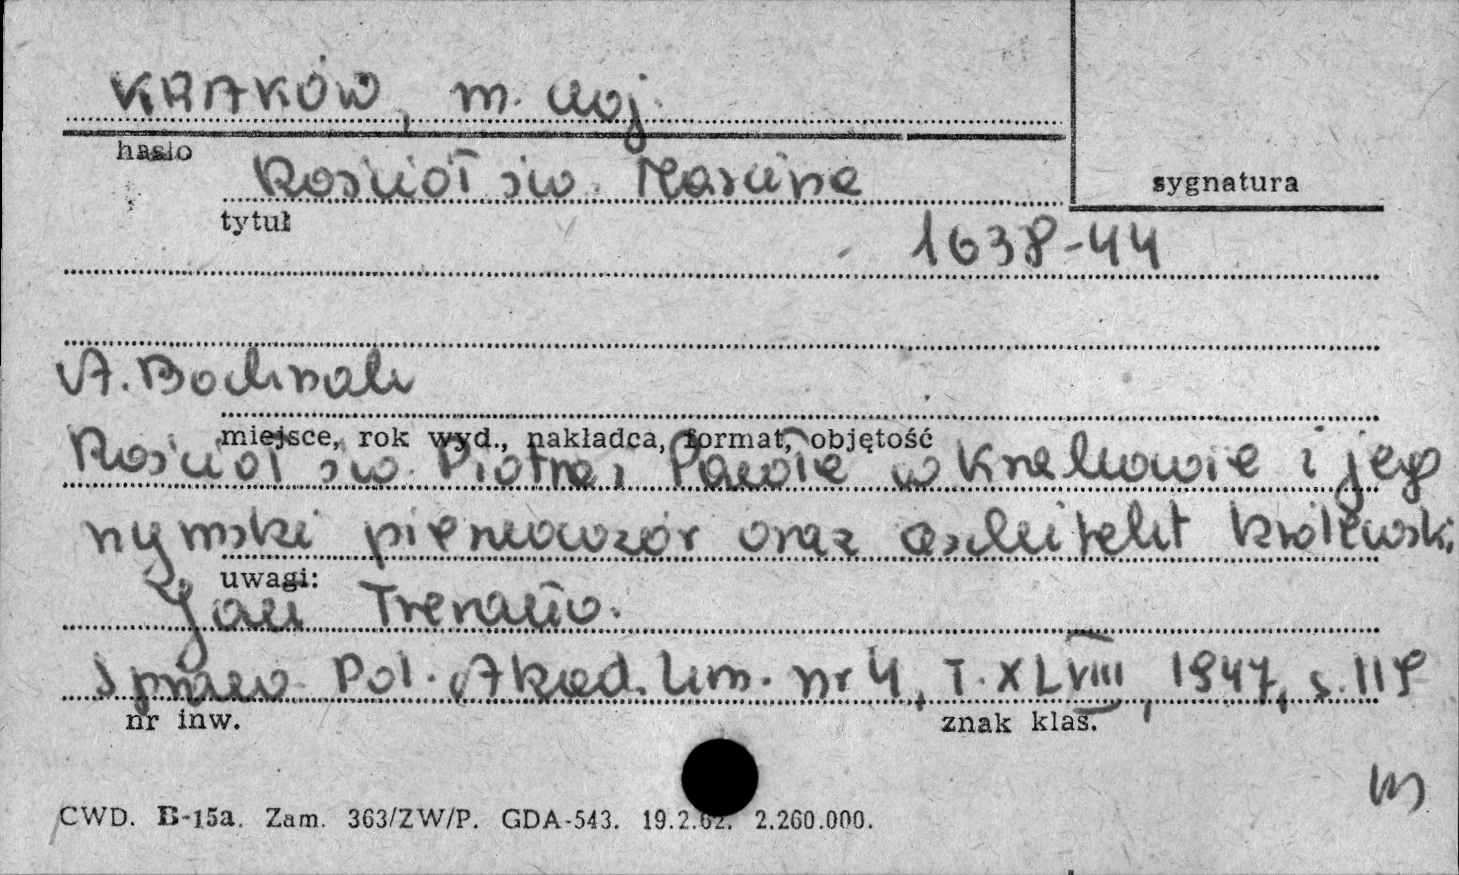 KRAKÓW, m. woj.
hasło
Kościół św. Marcina
sygnatura
tytuł
1638-44
A. Bochnak
miejsce, rok wyd., nakładca, format, objętość
Kościół św. Piotra i Pawła w Krakowie i jego
rzymski pierwowzór oraz architekt królewski
uwagi:
Jan Trevano.
Spraw. Pol. Akad. Um. nr 4, T. XLVIII, 1947, s. 119
nr inw.
znak klas.
CWD. B-15a. Zam. 363/ZW/P. GDA-543. 19.2.62. 2.260.000.